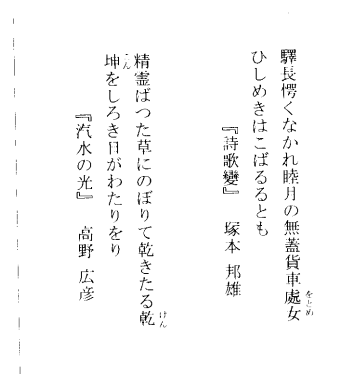 驛長愕くなかれ睦月の無蓋貨車處女
をとめ
ひしめきはこばるるとも
『詩歌變』　塚本 邦雄
精霊ばつた草にのぼりて乾きたる乾
けん
坤をしろき日がわたりをり
こん
『汽水の光』　高野 広彦